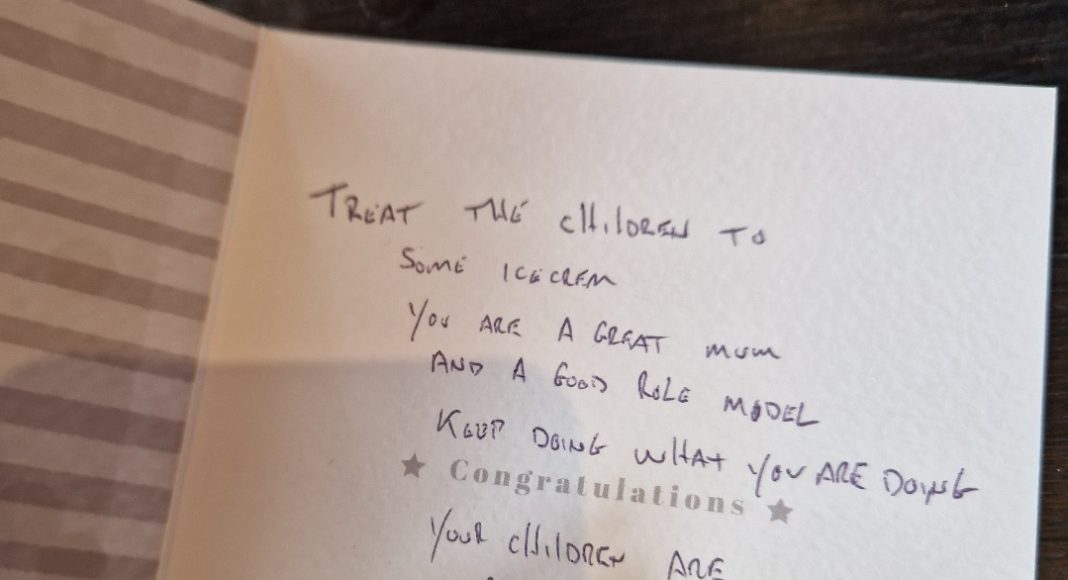 TREAT THE CHILDREN TO
SOME ICECREM
YOU ARE A GREAT MUM
AND A GOOD ROLE MODEL
KEEP DOING WHAT YOU ARE DOING
★ Congratulations ★
YOUR CHILDREN ARE